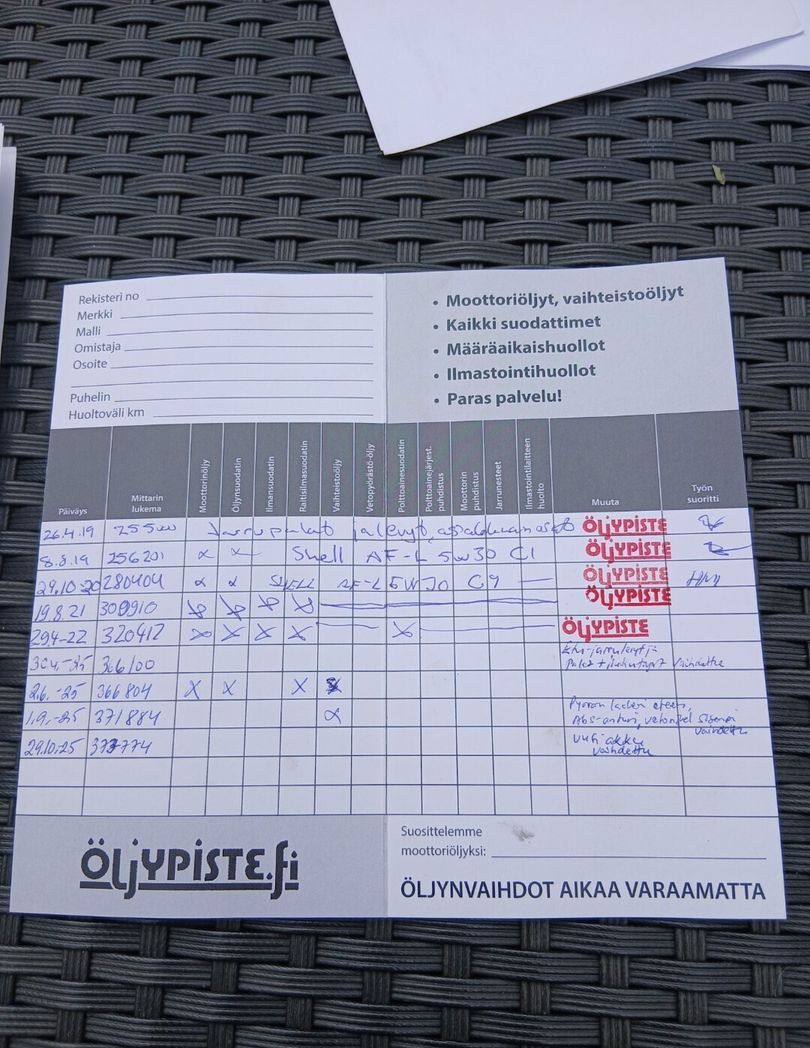 Rekisteri no
Merkki
Malli
Omistaja
Osoite
Puhelin
Huoltoväli km
• Moottoriöljyt, vaihteistoöljyt
• Kaikki suodattimet
• Määräaikaishuollot
• Ilmastointihuollot
• Paras palvelu!
Päiväys
Mittarin lukema
Moottoriöljy
Öljynsuodatin
Ilmansuodatin
Raitisilmasuodatin
Vaihteistoöljy
Vetopyörästö-öljy
Polttoainesuodatin
Polttoainejärjest. puhdistus
Moottorin puhdistus
Jarrunesteet
Ilmastointilaitteen huolto
Muuta
Työn suoritti
26.4.19 Jarrupalat ja levyt, ÖLJYPISTE
8.8.19 256201 x x Shell AF-L 5W30 C1 ÖLJYPISTE
29.10.20 280404 x x SHELL AF-L 5W30 ÖLJYPISTE
19.8.21 300910 x x x x ÖLJYPISTE
29.4-22 320412 x x x x x ÖLJYPISTE
30.4.-25 366100
vaihdettu
2.6.-25 366804 x x x
1.9.-25 371884 x
Abs-anturi,
vaihdettu
29.10.-25 uusi akku
vaihdettu
ÖLJYPISTE.fi
Suosittelemme
moottoriöljyksi:
ÖLJYNVAIHDOT AIKAA VARAAMATTA